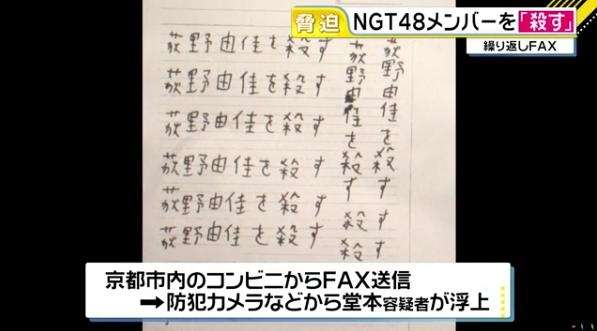 脅迫 NGT48メンバーを「殺す」
繰り返しFAX
荻野由佳を殺す
荻野由佳を殺す
荻野由佳を殺す
荻野由佳を殺す
荻野由佳を殺す
荻野由佳を殺す
荻野由佳を殺す
荻野由佳を殺す
殺す
殺す
京都市内のコンビニからFAX送信
➡防犯カメラなどから堂本容疑者が浮上